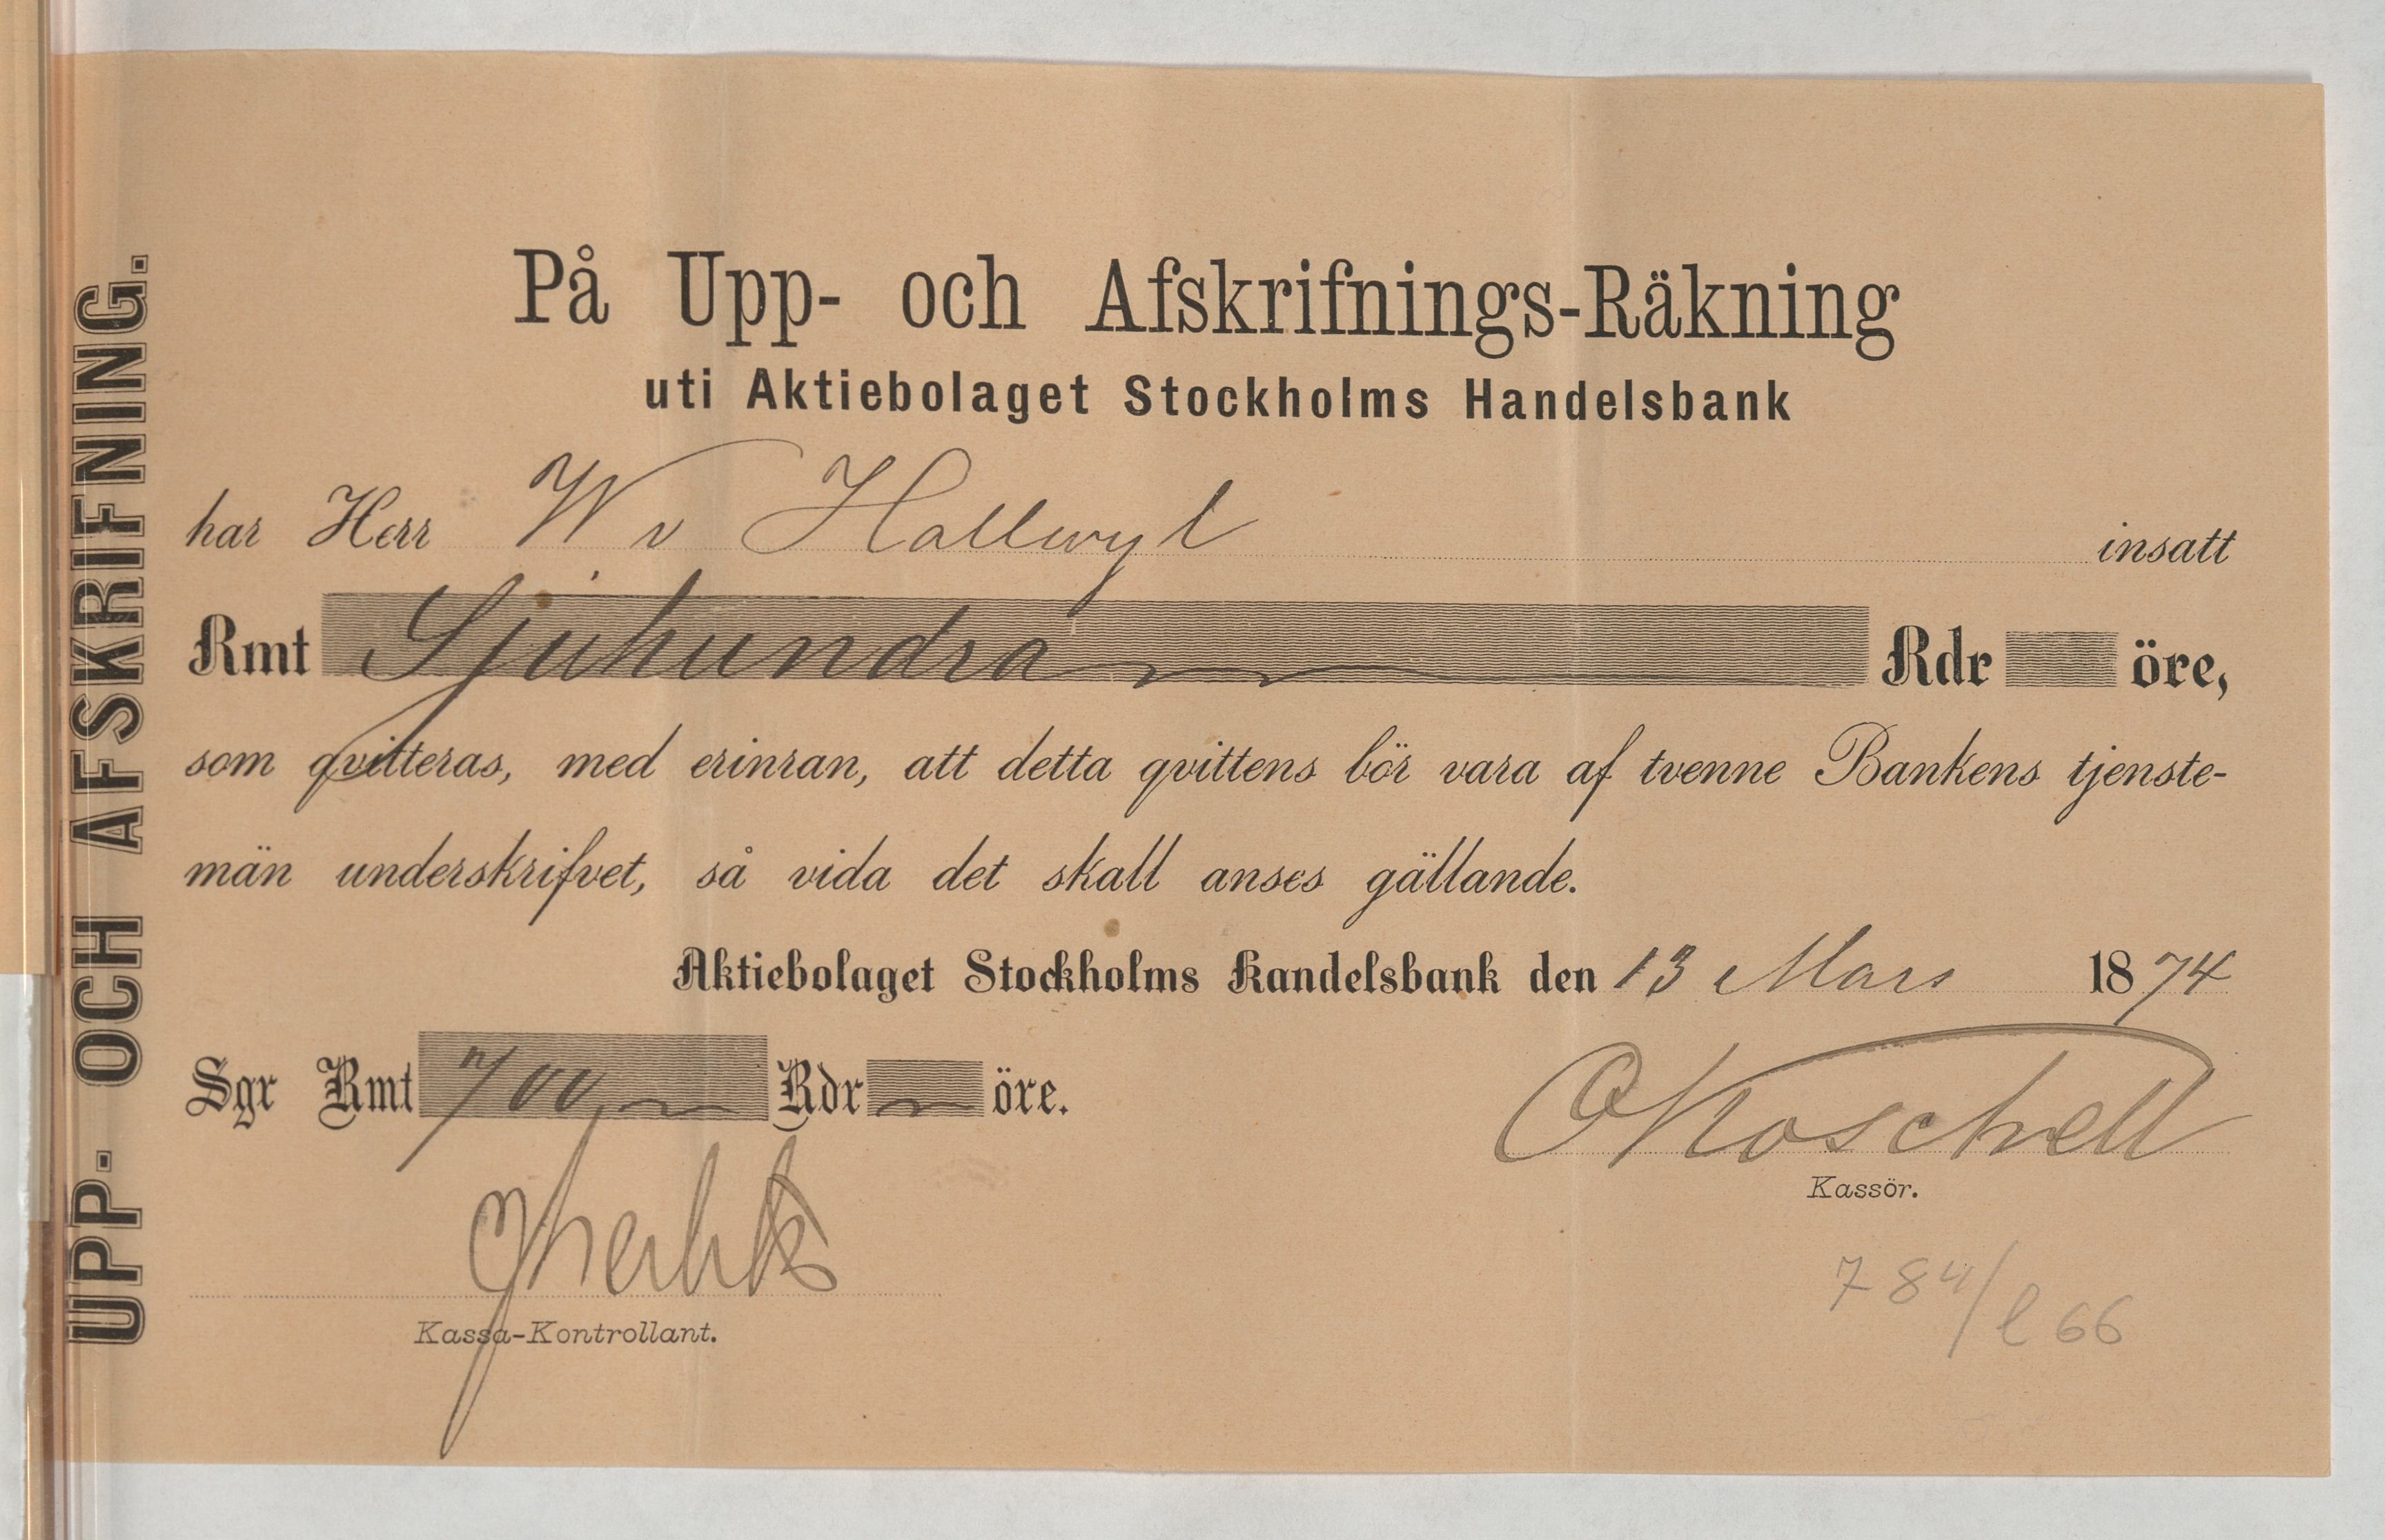 UPP- OCH AFSKRIFNING.
På Upp- och Afskrifnings-Räkning
uti Aktiebolaget Stockholms Handelsbank
har Herr W v Hallwyl insatt
Rmt Sjuhundra Rdr öre,
som qvitteras, med erinran, att detta qvittens bör vara af tvenne Bankens tjenste-
män underskrifvet, så vida det skall anses gällande.
Aktiebolaget Stockholms Handelsbank den 13 Mars 1874
Sgr Rmt 700,— Rdr — öre.
Kassör.
Kassa-Kontrollant.